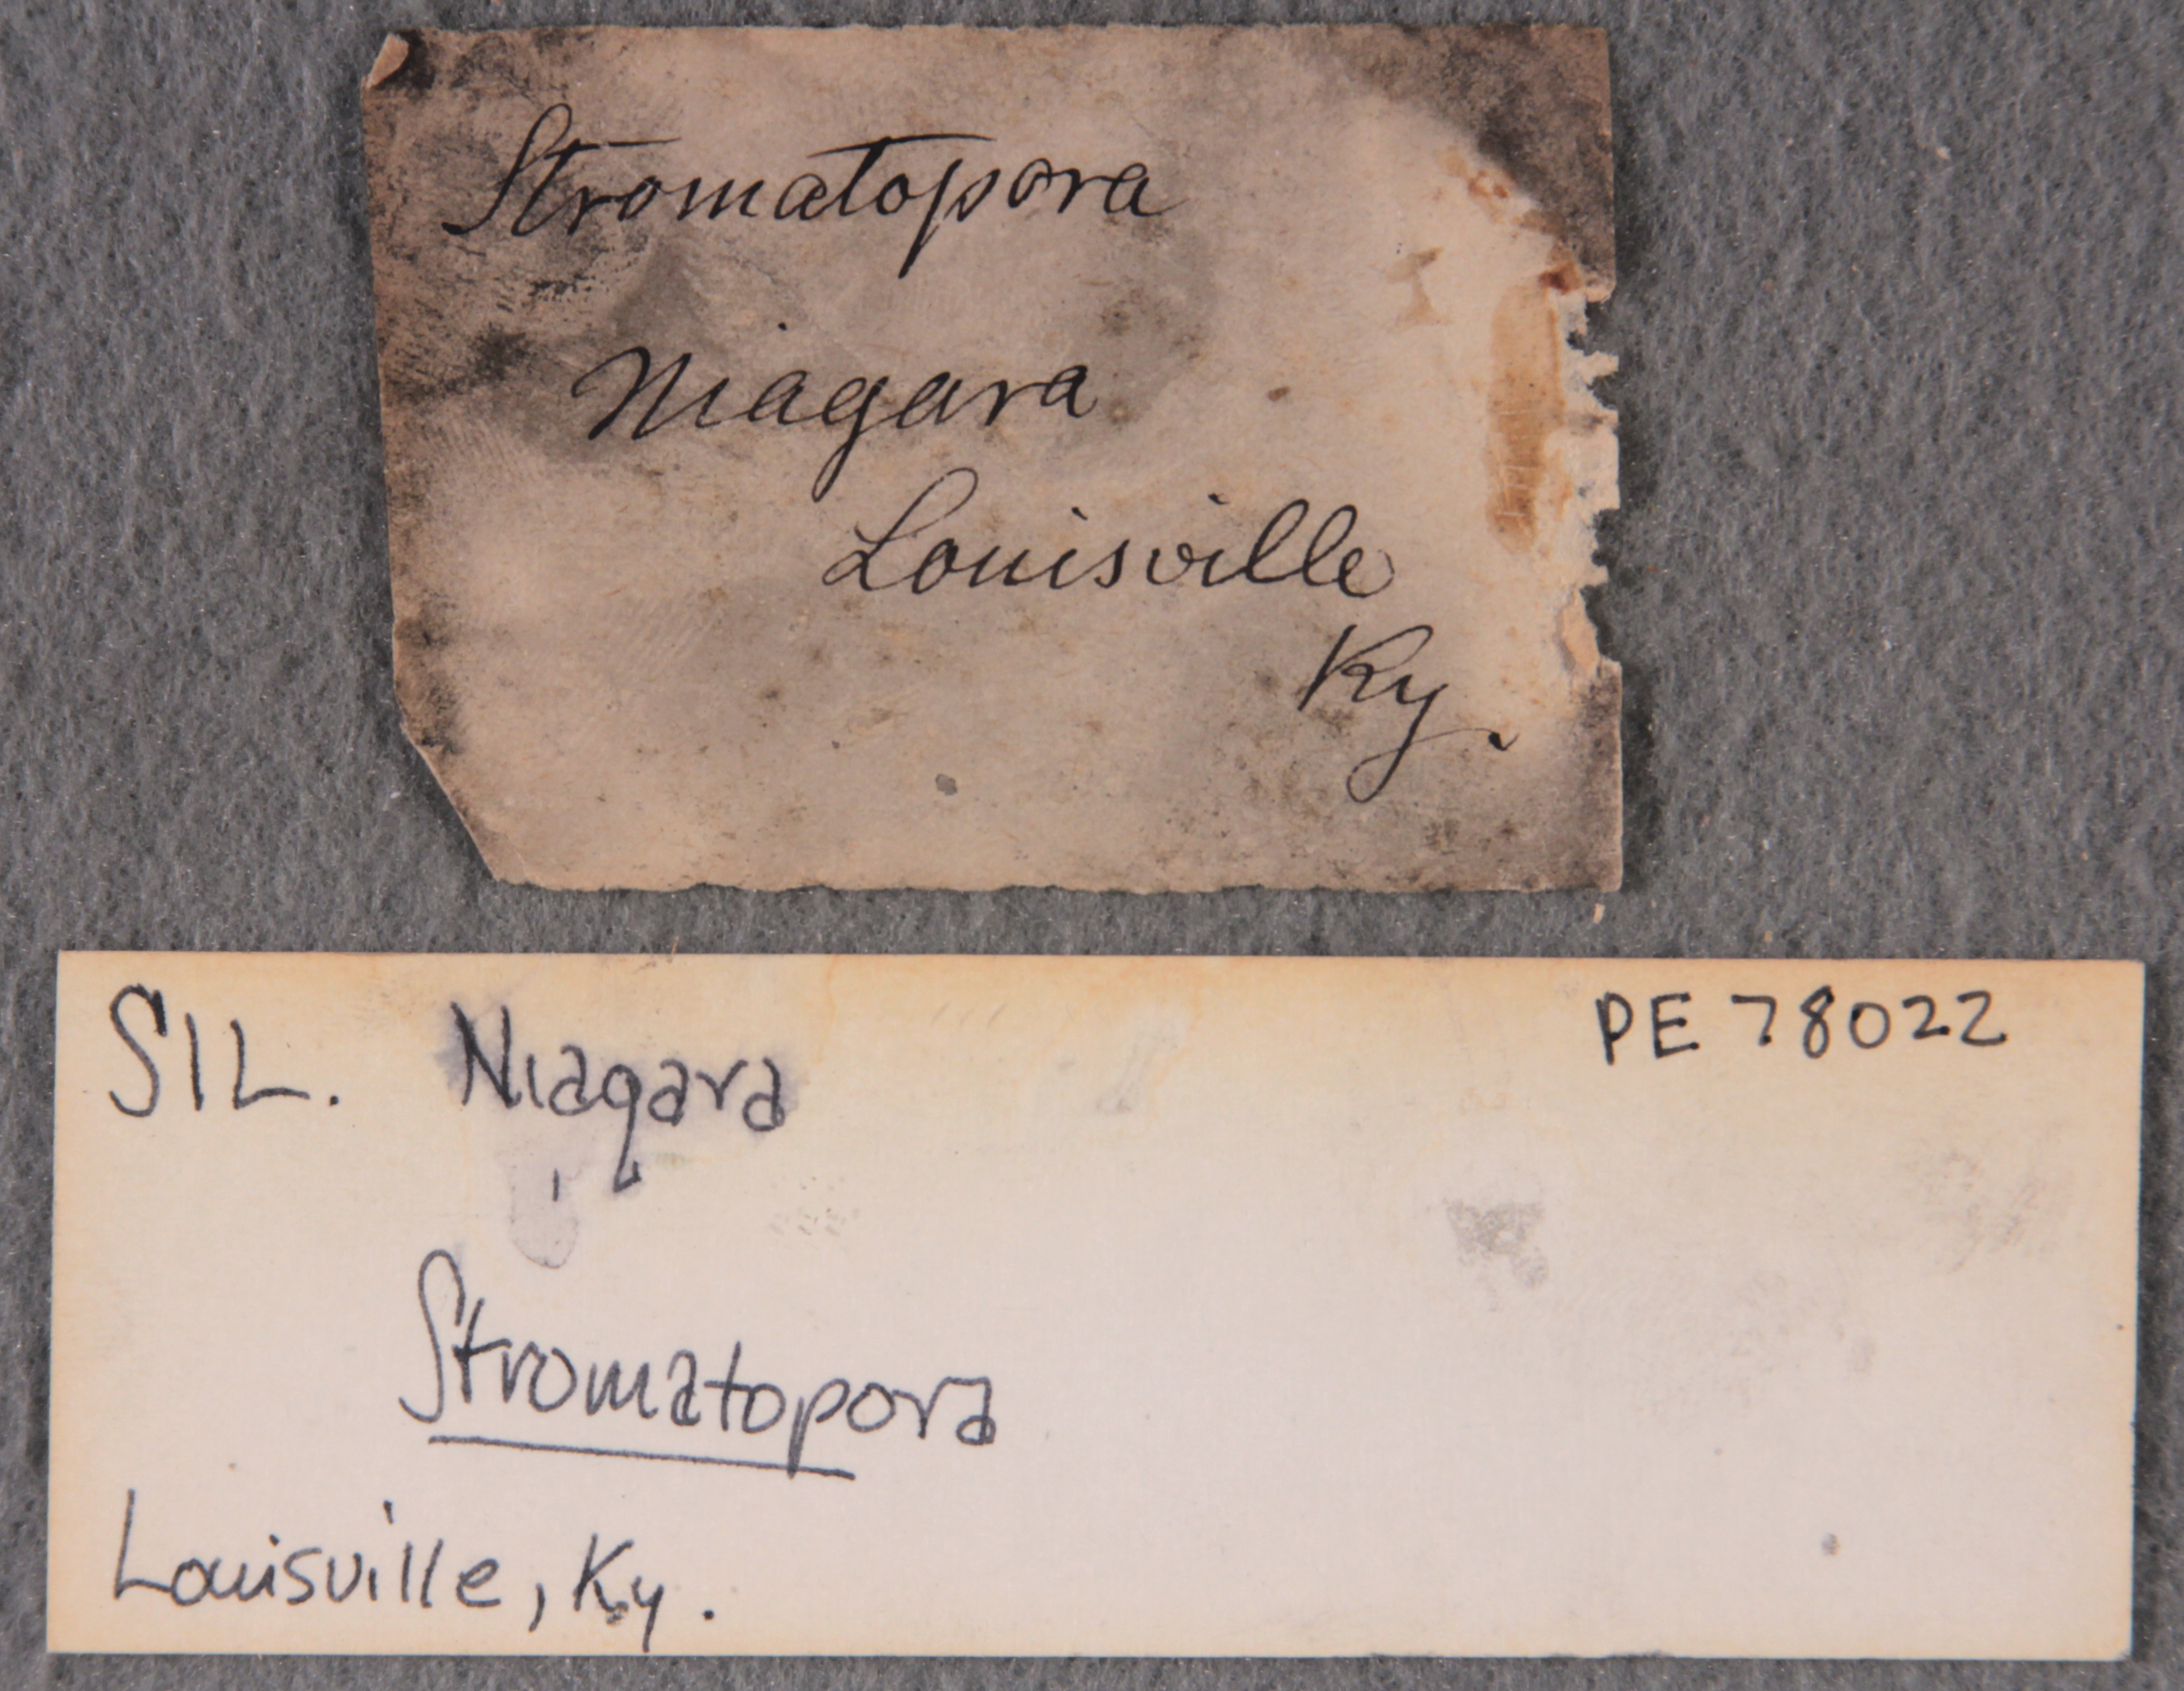 Stromatopora
Niagara
Louisville
Ky.
SIL. Niagara PE 78022
Stromatopora
Louisville, Ky.